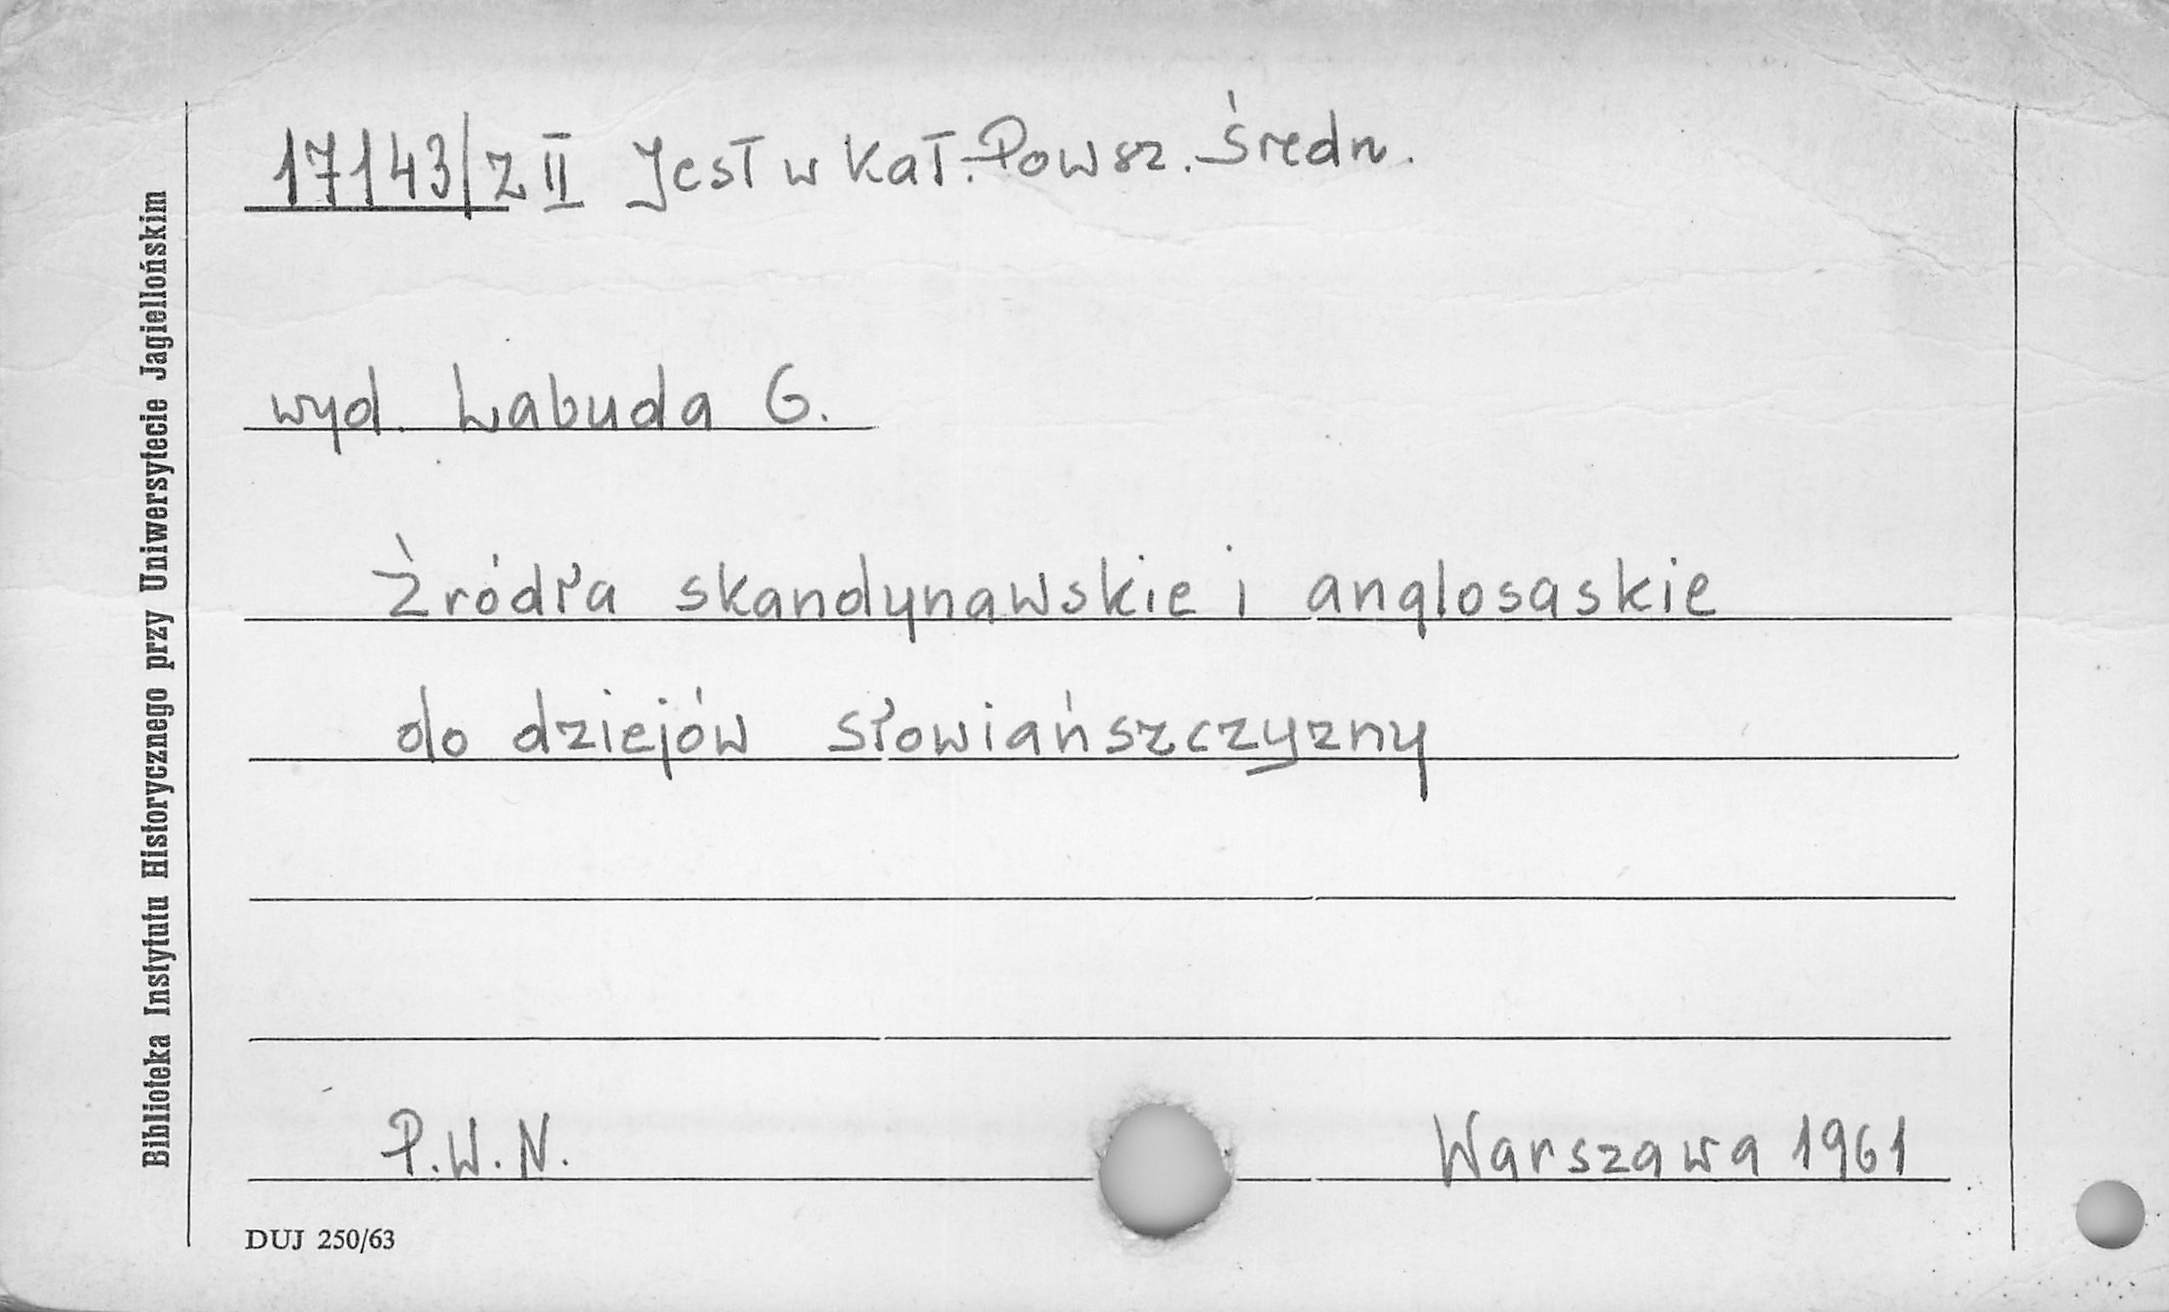 17143/z II Jest w Kat. Powsz. Średn.
wyd. Labuda G.
Źródła skandynawskie i anglosaskie
do dziejów słowiańszczyzny
P.W.N. Warszawa 1961
DUJ 250/63
Biblioteka Instytutu Historycznego przy Uniwersytecie Jagiellońskim